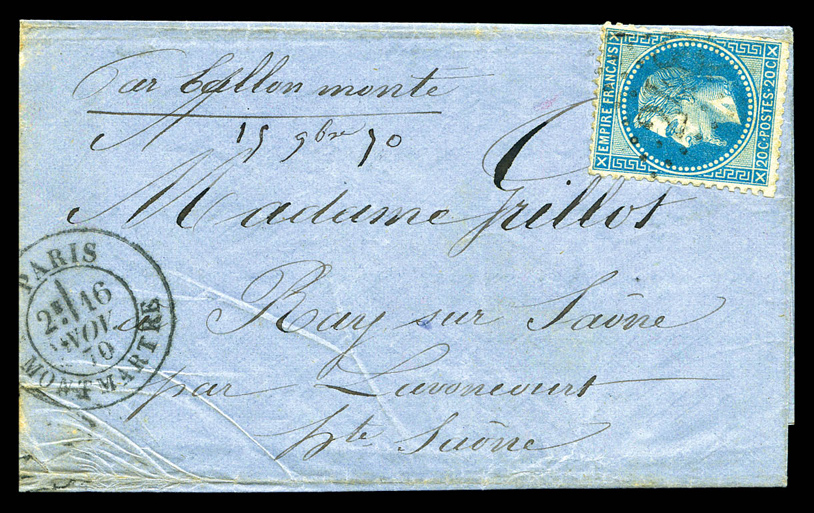 Par Ballon monté
15 9bre 70
EMPIRE FRANCAIS
20C POSTES 20C
Madame Grillot
PARIS
2E 16
NOV.
70
MONTMARTRE
à Ray sur Saône
par Lavoncourt
hte Saône